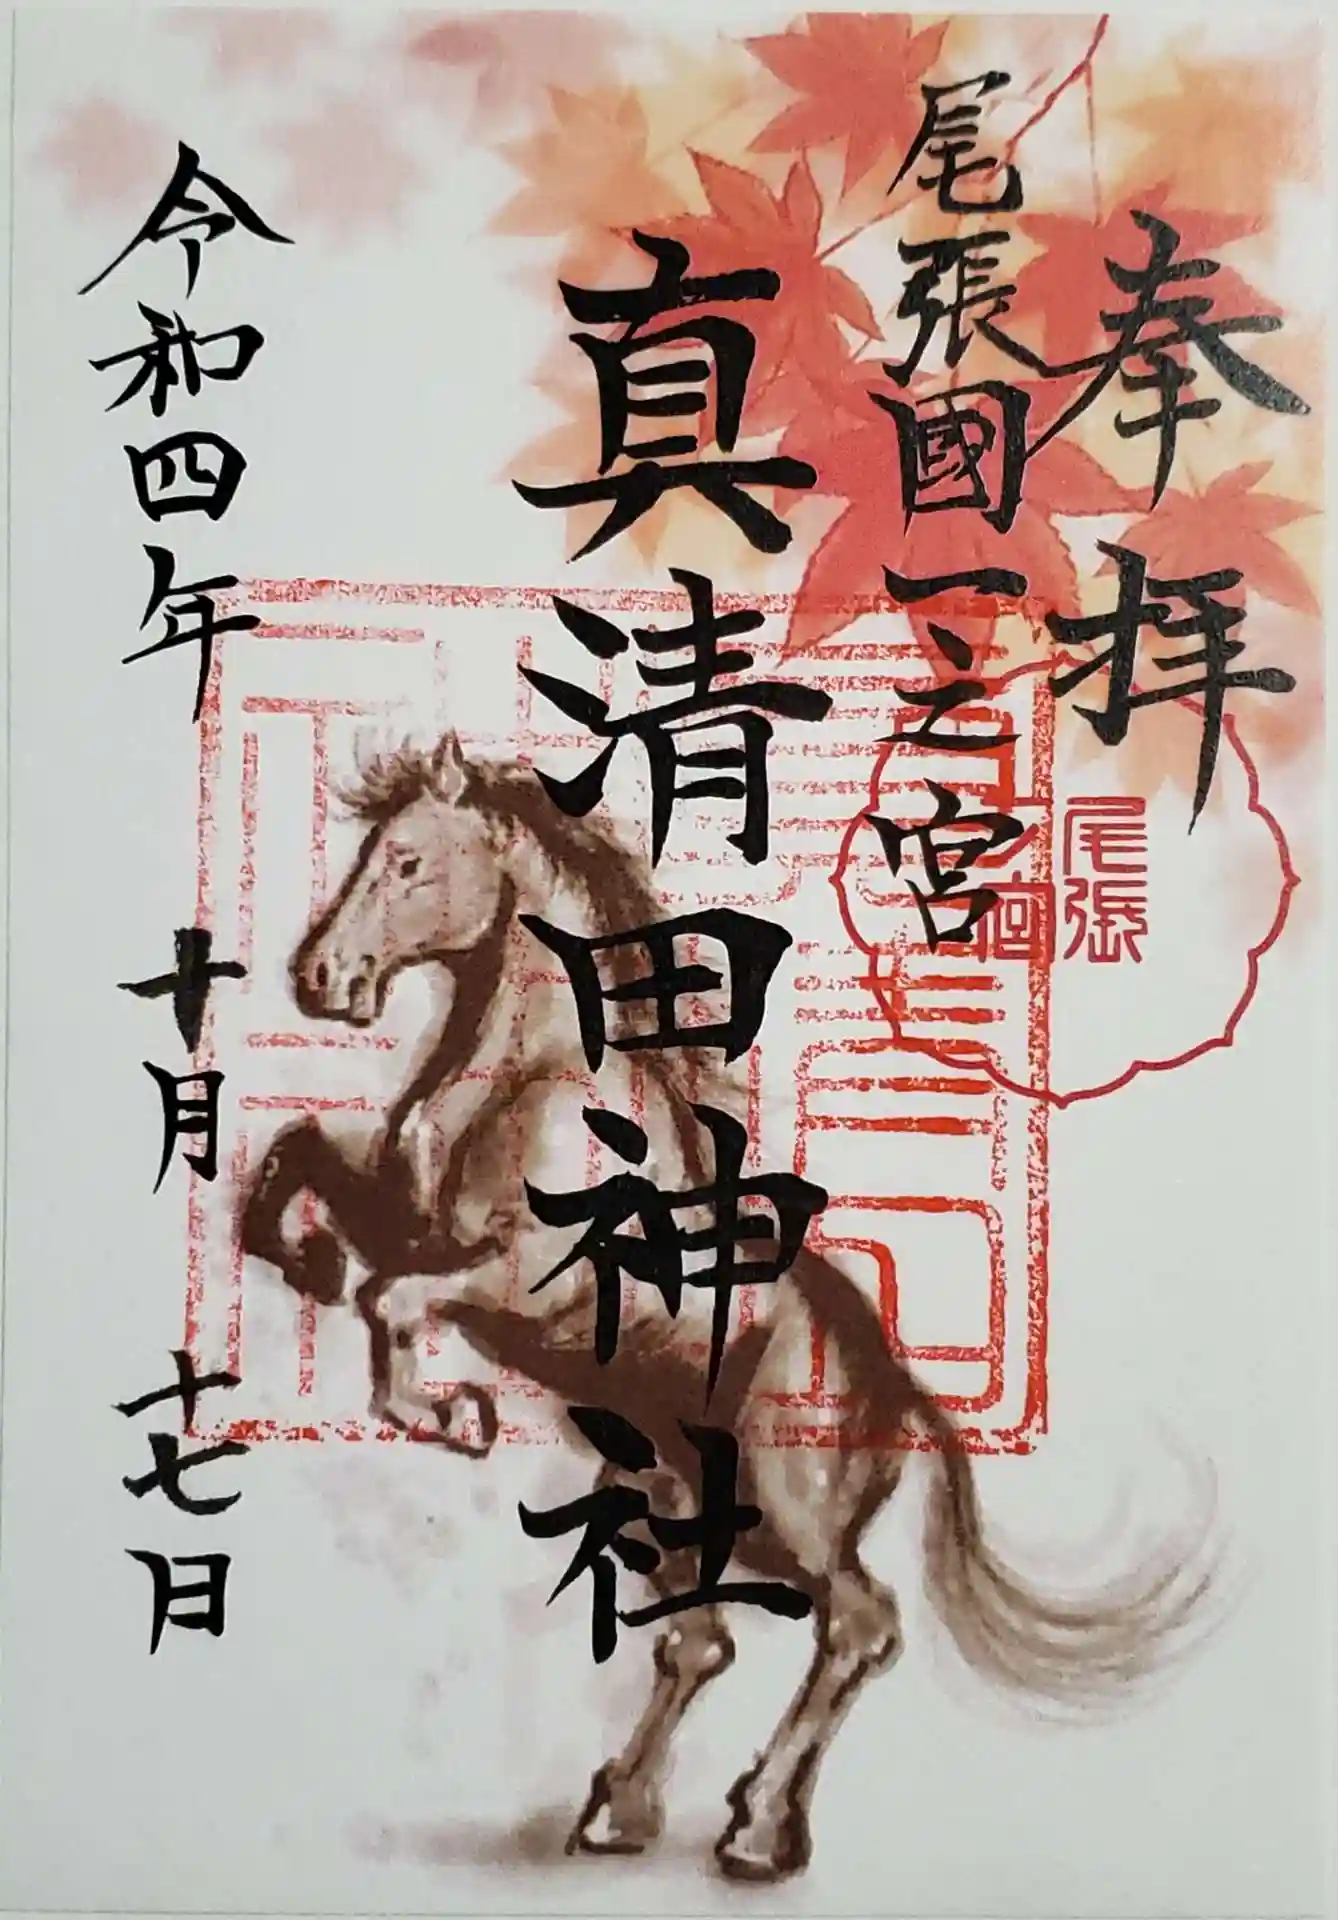 奉拝
尾張國一之宮
真清田神社
令和四年十月十七日
尾張
一宮